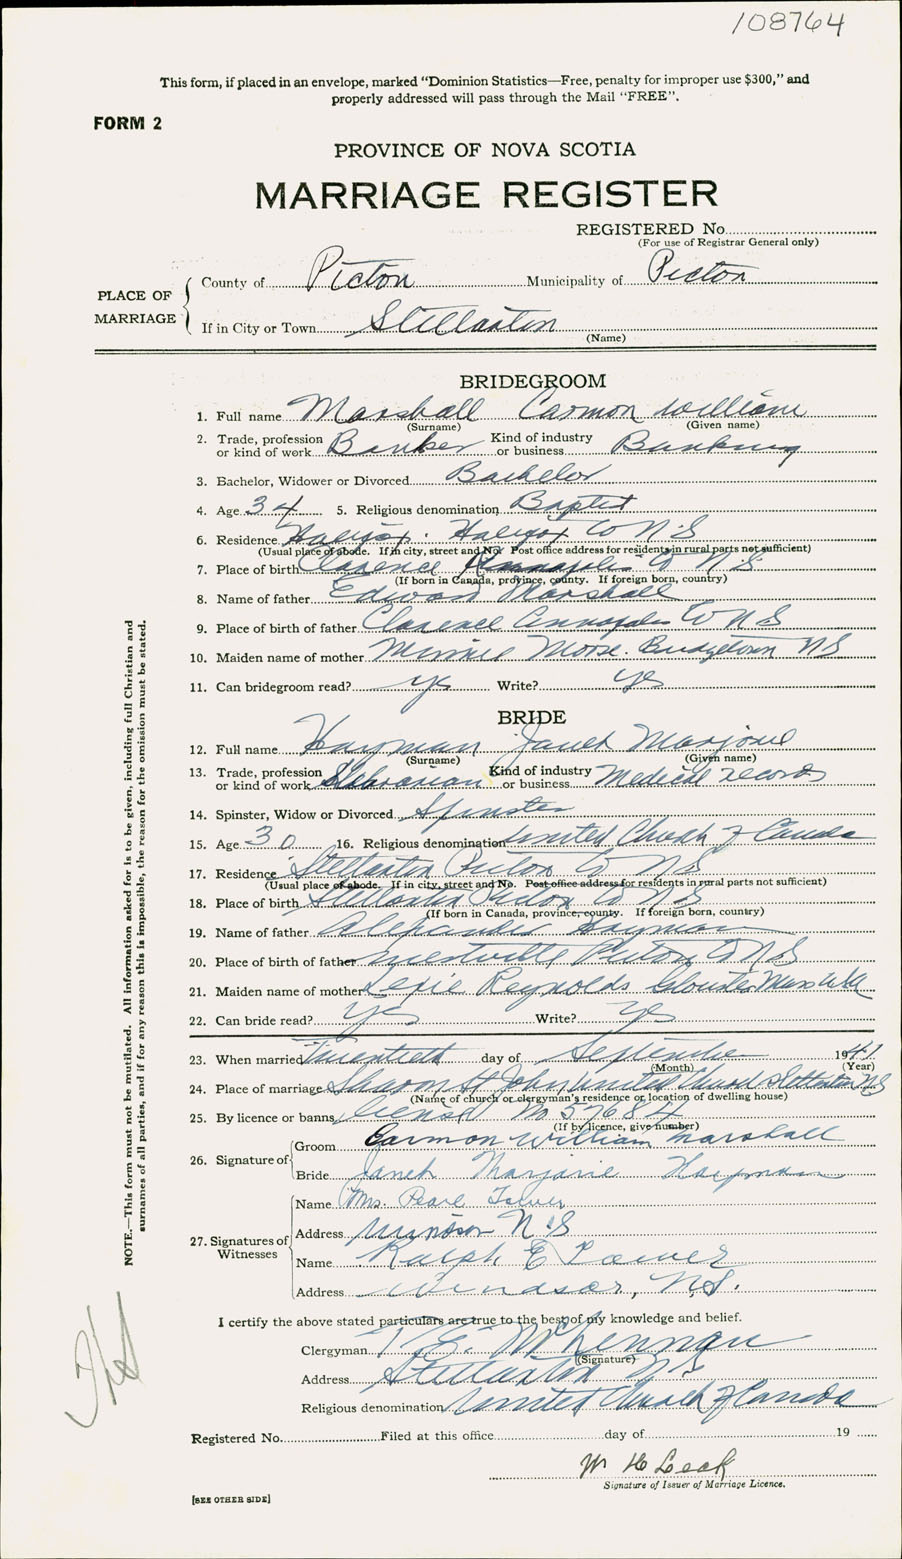 108764
This form, if placed in an envelope, marked “Dominion Statistics—Free, penalty for improper use $300,” and
properly addressed will pass through the Mail “FREE”.
FORM 2
PROVINCE OF NOVA SCOTIA
MARRIAGE REGISTER
REGISTERED No
(For use of Registrar General only)
PLACE OF MARRIAGE
County of Pictou Municipality of Pictou
If in City or Town Stellarton
(Name)
BRIDEGROOM
1. Full name Marshall Carmon William
(Surname) (Given name)
2. Trade, profession or kind of work Banker Kind of industry or business Banking
3. Bachelor, Widower or Divorced Bachelor
4. Age 34 5. Religious denomination Baptist
6. Residence Halifax. Halifax Co N.S
(Usual place of abode. If in city, street and No. Post office address for residents in rural parts not sufficient)
7. Place of birth Clarence Annapolis Co N.S.
(If born in Canada, province, county. If foreign born, country)
8. Name of father Edward Marshall
9. Place of birth of father Clarence Annapolis Co N S
10. Maiden name of mother Minnie Morse. Bridgetown NS
11. Can bridegroom read? yes Write? yes
BRIDE
12. Full name Hayman Janet Marjorie
(Surname) (Given name)
13. Trade, profession or kind of work Librarian Kind of industry or business Medical records
14. Spinster, Widow or Divorced Spinster
15. Age 30 16. Religious denomination United Church of Canada
17. Residence Stellarton Pictou Co NS
(Usual place of abode. If in city, street and No. Post office address for residents in rural parts not sufficient)
18. Place of birth Stellarton Pictou Co NS
(If born in Canada, province, county. If foreign born, country)
19. Name of father Alexander Hayman
20. Place of birth of father Westville Pictou Co N S
21. Maiden name of mother Lexie Reynolds Mass USA
22. Can bride read? yes Write? yes
23. When married Twentieth day of September 1941
(Month) (Year)
24. Place of marriage Sharon St John United Church Stellarton NS
(Name of church or clergyman's residence or location of dwelling house)
25. By licence or banns License No 57684
(If by licence, give number)
26. Signature of
Groom Carmon William Marshall
Bride Janet Marjorie Hayman
27. Signatures of Witnesses
Name Mrs. Pearl
Address Windsor N.S
Name Ralph E
Address Windsor, N.S.
I certify the above stated particulars are true to the best of my knowledge and belief.
Clergyman
(Signature)
Address Stellarton NS
Religious denomination United Church of Canada
Registered No. Filed at this office day of 19
W H Leak
Signature of Issuer of Marriage Licence.
[SEE OTHER SIDE]
NOTE.—This form must not be mutilated. All information asked for is to be given, including full Christian and
surnames of all parties, and if for any reason this is impossible, the reason for the omission must be stated.